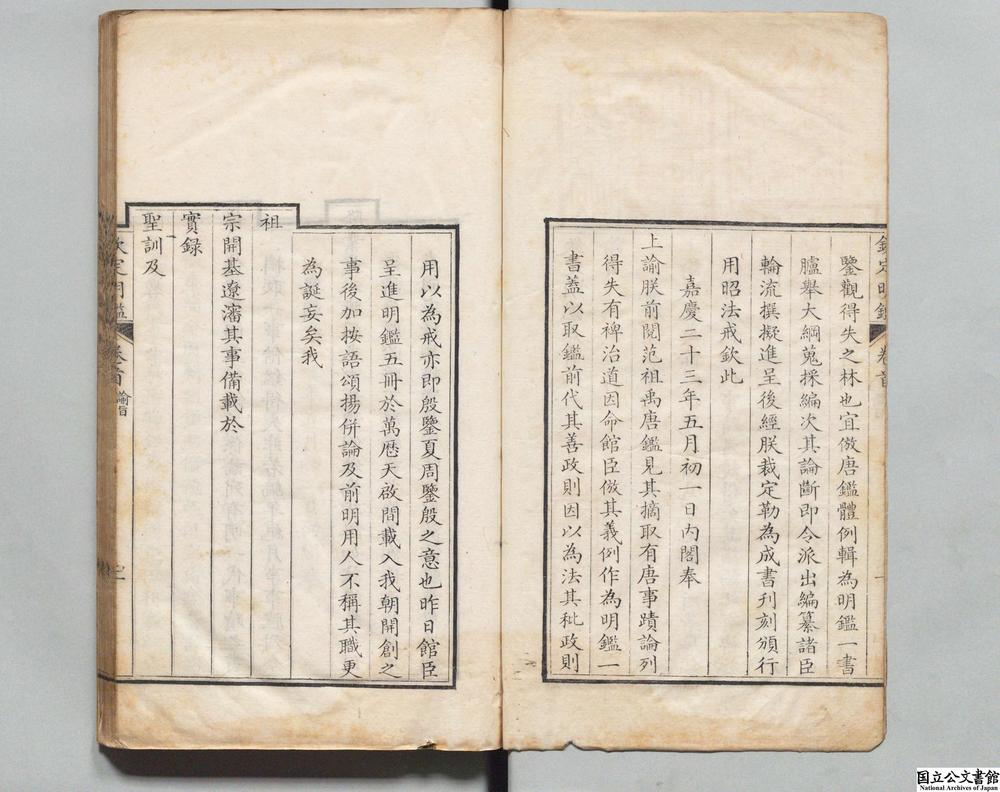 欽定明鑑 卷首 一
鑒觀得失之林也宜倣唐鑑體例輯為明鑑一書
臚舉大綱蒐採編次其論斷即令派出編纂諸臣
輪流撰擬進呈後經朕裁定勒為成書刊刻頒行
用昭法戒欽此
嘉慶二十三年五月初一日內閣奉
上諭朕前閱范祖禹唐鑑見其摘取有唐事蹟論列
得失有裨治道因命館臣倣其義例作為明鑑一
書蓋以取鑑前代其善政則因以為法其秕政則
用以為戒亦即殷鑒夏周鑒殷之意也昨日館臣
呈進明鑑五冊於萬歷天啟間載入我朝開創之
事後加按語頌揚併論及前明用人不稱其職更
為誕妄矣我
祖
宗開基遼瀋其事備載於
實錄
聖訓及
欽定明鑑 卷首 諭旨 二
国立公文書館
National Archives of Japan